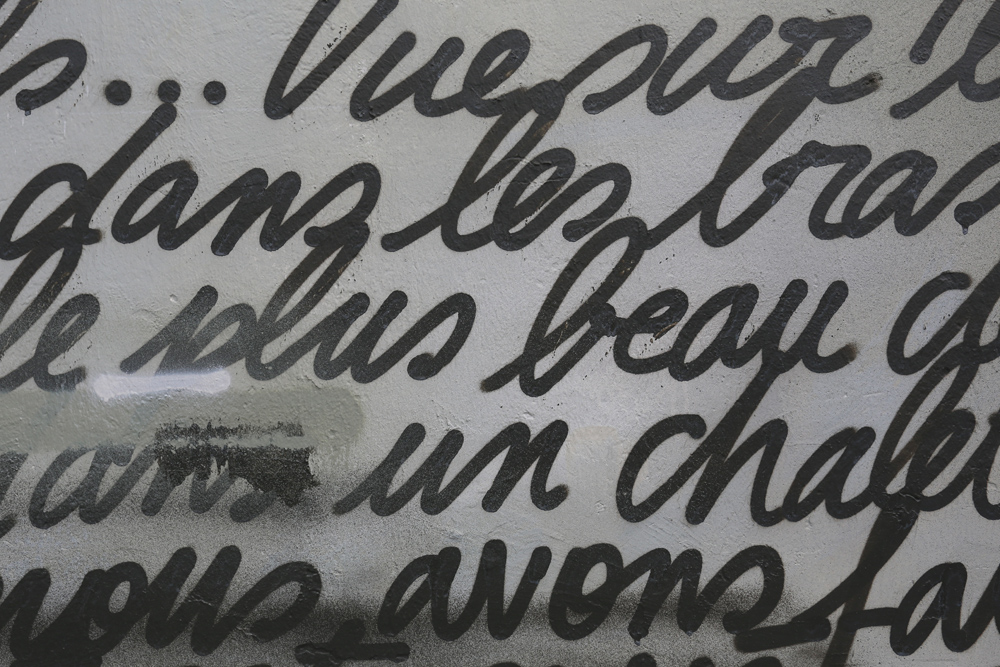 s... Vue sur l
dans les bras
le plus beau d
dans un chalet
nous avons fa